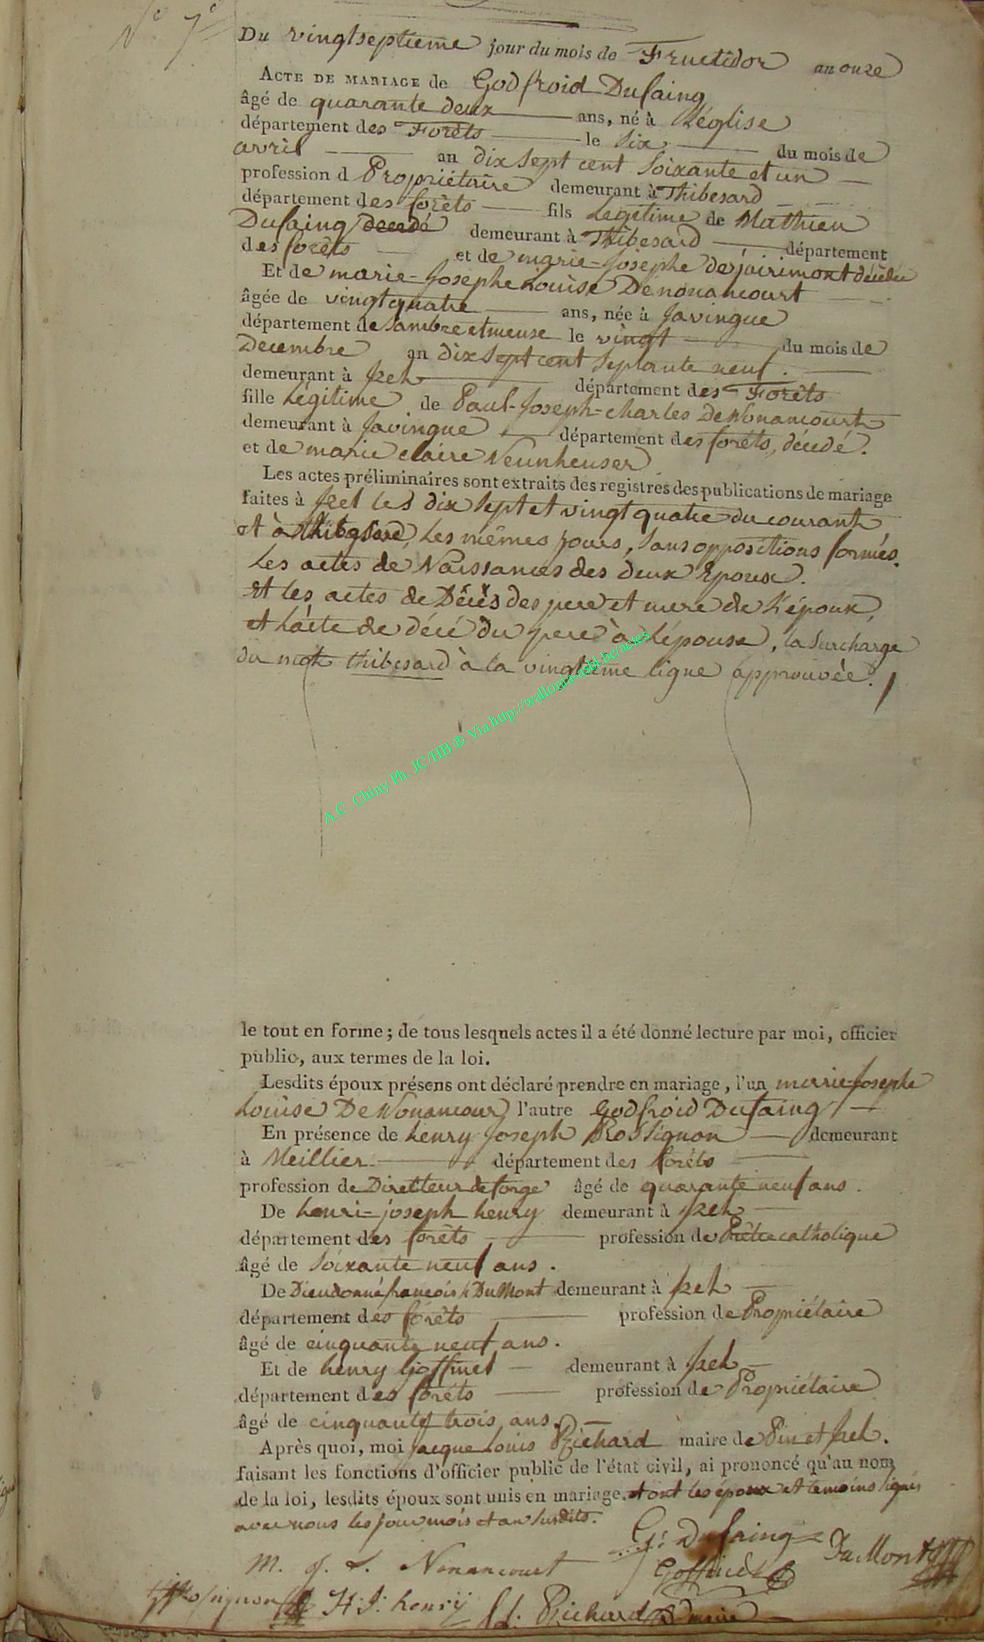 N.º 7.º
Du vingtseptieme jour du mois de Fructidor an onze
ACTE DE MARIAGE de Godfroid Dufaing
âgé de quarante deux ans, né à Léglise
département des Forêts le six du mois de
avril an dix sept cent soixante et un
profession d Propriétaire demeurant à Thibesard
département des forêts fils Legitime de Mathieu
Dufaing decedé demeurant à Thibesard département
des forêts et de marie-Josephe de jairimont décédée
Et de marie-Josephe Louise Denonancourt
âgée de vingtquatre ans, née à Javingue
département de Sambre et meuse le vingt du mois de
Decembre an dix sept cent septante neuf.
demeurant à Izel département des Forêts
fille Légitime de Paul-Joseph-charles De Nonancourt
demeurant à Javingue département des forêts, décédé.
et de marie claire Neunheuser
Les actes préliminaires sont extraits des registres des publications de mariage
faites à Izel les dix sept et vingt quatre du courant
et à thibesard, les mêmes jours, sans oppositions formés.
Les actes de Naissances des deux Epoux.
Et les actes de Décès des pere et mere de l'époux,
et l'acte de décé du pere à l'épouse, la surcharge
du mot thibesard à la vingtieme ligne approuvée.
A.C. Chiny Ph. JC/HB ® Via http://
le tout en forme; de tous lesquels actes il a été donné lecture par moi, officier
public, aux termes de la loi.
Lesdits époux présens ont déclaré prendre en mariage, l'un marie Josephe
Louise De Nonancour l'autre Godfroid Dufaing
En présence de henry Joseph Rossignon demeurant
à Meillier département des forêts
profession de Directeur de forge âgé de quarante neuf ans.
De henri-joseph henry demeurant à Izel
département des forêts profession de Prêtre catholique
âgé de soixante neuf ans.
De Dieudonné françois Dumont demeurant à Izel
département des forêts profession de Propriétaire
âgé de cinquante neuf ans.
Et de henry Goffinet demeurant à Izel
département des forêts profession de Propriétaire
âgé de cinquante trois ans.
Après quoi, moi jacque Louis Richard maire de Pin et Izel.
faisant les fonctions d'officier public de l'état civil, ai prononcé qu'au nom
de la loi, lesdits époux sont unis en mariage. et ont les époux et temoins signés
avec nous les jour mois et an susdits.
G: Dufaing
M. J. L. Nonancourt Goffinet DuMont
Rossignon H: J: henry J. L. Richard maire